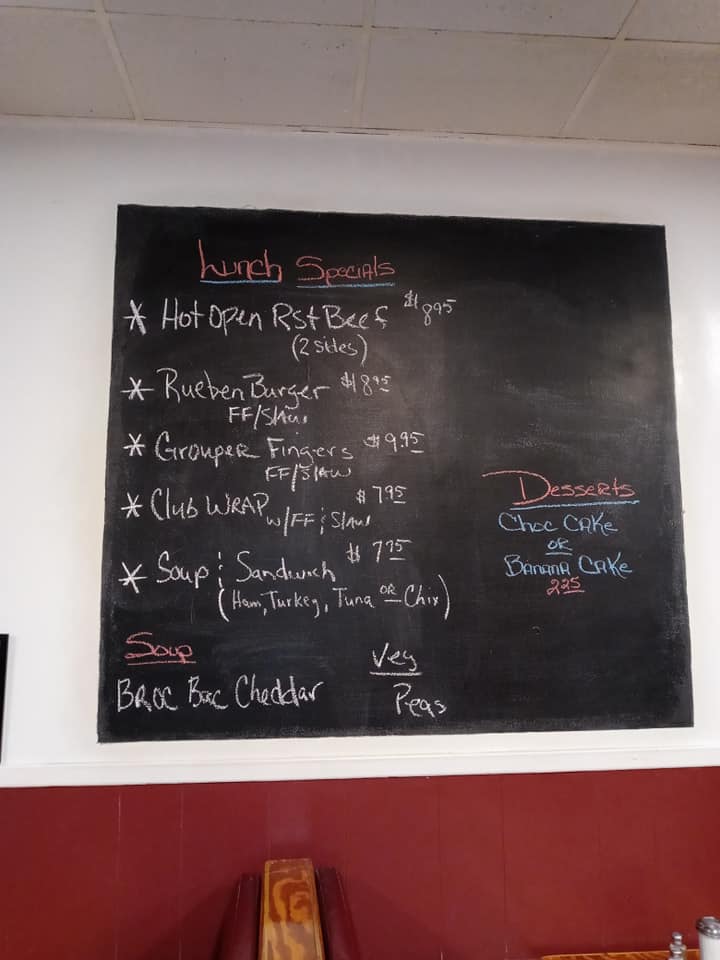 Lunch Specials
* Hot Open Rst Beef $8.95
(2 sides)
* Rueben Burger $8.95
FF/Slaw
* Grouper Fingers $9.95
FF/Slaw
* Club Wrap $7.95
w/FF & Slaw
* Soup & Sandwich $7.95
(Ham, Turkey, Tuna or Chix)
Soup
Broc Bac Cheddar
Veg
Peas
Desserts
Choc Cake
or
Banana Cake
2.25